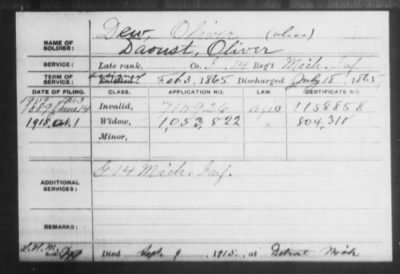 Dew, Oliver (alias)
NAME OF SOLDIER: Daoust, Oliver
SERVICE: Late rank, Co. I, 14 Reg't Mich. Inf.
TERM OF SERVICE: Enlisted Feb 3, 1865 Discharged July 18, 1865
DATE OF FILING. CLASS. APPLICATION NO. LAW. CERTIFICATE NO.
Invalid, 710926 1158858
1915, Oct. 1 Widow, 1,053,822 804,318
Minor,
ADDITIONAL SERVICES: G 14 Mich. Inf.
REMARKS:
Died Sept. 9, 1915, at Detroit Mich